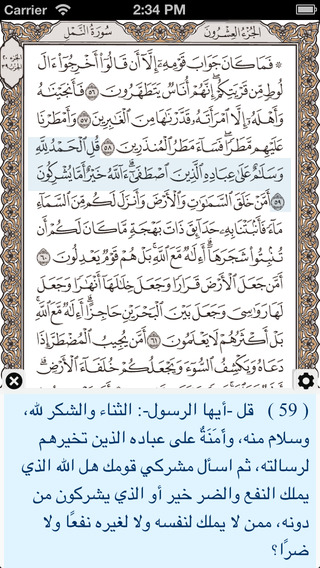 Carrier 2:34 PM
سُورَةُ النَّمْلِ الجُزْءُ العِشْرُونَ
۞ فَمَا كَانَ جَوَابَ قَوْمِهِۦٓ إِلَّآ أَن قَالُوٓا۟ أَخْرِجُوٓا۟ ءَالَ
لُوطٍ مِّن قَرْيَتِكُمْ ۖ إِنَّهُمْ أُنَاسٌ يَتَطَهَّرُونَ ٥٦ فَأَنجَيْنَـٰهُ
وَأَهْلَهُۥٓ إِلَّا ٱمْرَأَتَهُۥ قَدَّرْنَـٰهَا مِنَ ٱلْغَـٰبِرِينَ ٥٧ وَأَمْطَرْنَا
عَلَيْهِم مَّطَرًا ۖ فَسَآءَ مَطَرُ ٱلْمُنذَرِينَ ٥٨ قُلِ ٱلْحَمْدُ لِلَّهِ
وَسَلَـٰمٌ عَلَىٰ عِبَادِهِ ٱلَّذِينَ ٱصْطَفَىٰٓ ۗ ءَآللَّهُ خَيْرٌ أَمَّا يُشْرِكُونَ
٥٩ أَمَّنْ خَلَقَ ٱلسَّمَـٰوَٰتِ وَٱلْأَرْضَ وَأَنزَلَ لَكُم مِّنَ ٱلسَّمَآءِ
مَآءً فَأَنۢبَتْنَا بِهِۦ حَدَآئِقَ ذَاتَ بَهْجَةٍ مَّا كَانَ لَكُمْ أَن
تُنۢبِتُوا۟ شَجَرَهَآ ۗ أَءِلَـٰهٌ مَّعَ ٱللَّهِ ۚ بَلْ هُمْ قَوْمٌ يَعْدِلُونَ ٦٠
أَمَّن جَعَلَ ٱلْأَرْضَ قَرَارًا وَجَعَلَ خِلَـٰلَهَآ أَنْهَـٰرًا وَجَعَلَ
لَهَا رَوَٰسِىَ وَجَعَلَ بَيْنَ ٱلْبَحْرَيْنِ حَاجِزًا ۗ أَءِلَـٰهٌ مَّعَ ٱللَّهِ ۚ
بَلْ أَكْثَرُهُمْ لَا يَعْلَمُونَ ٦١ أَمَّن يُجِيبُ ٱلْمُضْطَرَّ إِذَا
دَعَاهُ وَيَكْشِفُ ٱلسُّوٓءَ وَيَجْعَلُكُمْ خُلَفَآءَ ٱلْأَرْضِ ۗ
( 59 ) قل -أيها الرسول-: الثناء والشكر لله،
وسلام منه، وأَمَنَةٌ على عباده الذين تخيرهم
لرسالته، ثم اسأل مشركي قومك هل الله الذي
يملك النفع والضر خير أو الذي يشركون من
دونه، ممن لا يملك لنفسه ولا لغيره نفعًا ولا
ضرًا؟